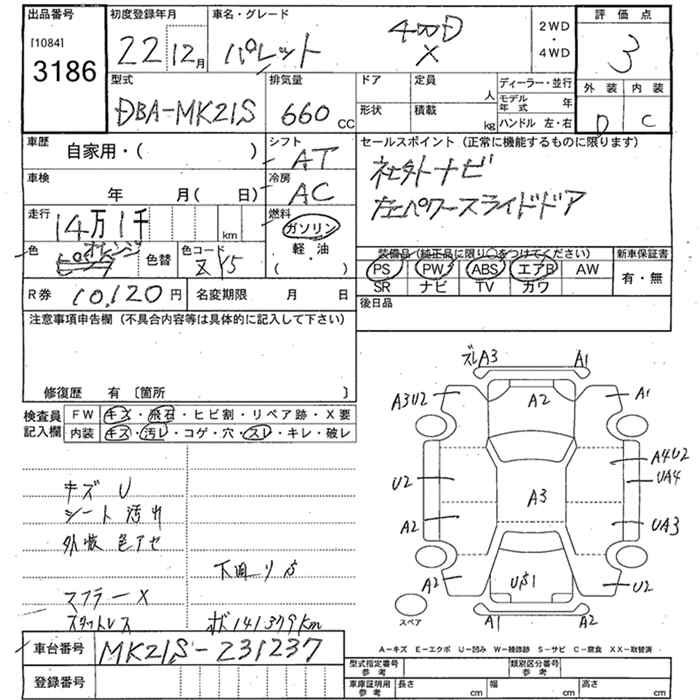 出品番号 初度登録年月 車名・グレード 評価点
[1084]
3186
22 12月 パレット 4WD X 2WD・4WD 3
型式 排気量 ドア 定員 人 ディーラー・並行 外装 内装
DBA-MK21S 660 CC 形状 積載 kg モデル年式 年 D C
ハンドル 左・右
車歴 自家用・( ) シフト AT セールスポイント (正常に機能するものに限ります)
車検 年 月( 日) 冷房 AC 社外ナビ
走行 14万1千 km 燃料 ガソリン 軽・油 ( ) 左パワースライドドア
色 オレンジ 色替 色コード ZY5 装備品 (純正品に限り○をつけてください) 新車保証書
PS PW ABS エアB AW 有・無
SR ナビ TV カワ
R券 10,120円 名変期限 月 日 後日品
注意事項申告欄 (不具合内容等は具体的に記入して下さい)
修復歴 有 〔箇所 〕
検査員記入欄 FW キズ・飛石・ヒビ割・リペア跡・X要
内装 キズ・汚レ・コゲ・穴・スレ・キレ・破レ
キズ U
シート 汚れ
外装 色アセ
下回りS
マフラーX
スタットレス
141379km
ズレA3 A1
A3U2 A2 A1
A4U2
U2 UA4
A3
A2 UA3
A2 US1 U2
スペア A1 A2
A-キズ E-エクボ U-凹み W-補修跡 S-サビ C-腐食 XX-取替済
車台番号 MK21S-231237
登録番号
型式指定番号 参考 類別区分番号 参考
車庫証明用 参考 長さ cm 幅 cm 高さ cm